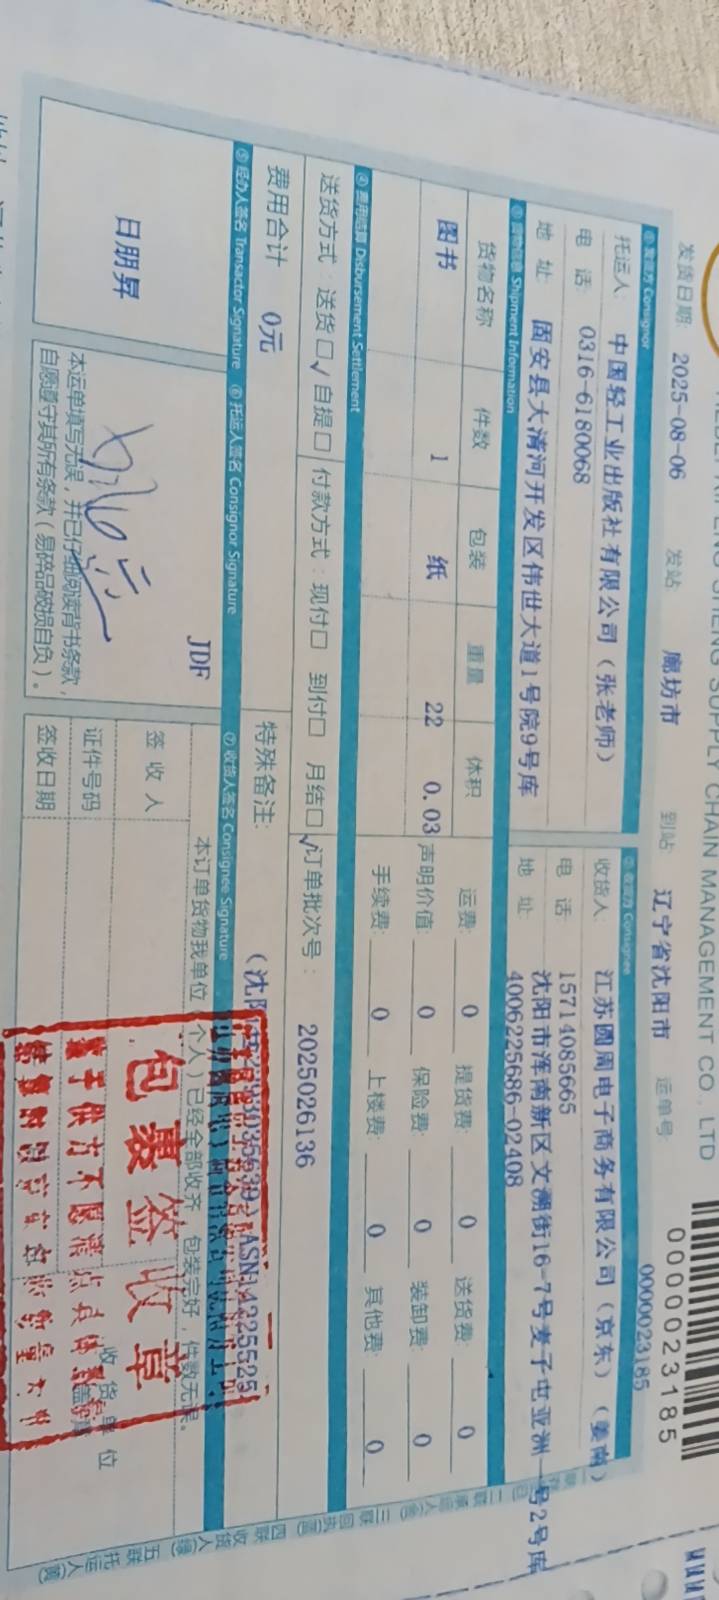 SUPPLY CHAIN MANAGEMENT CO., LTD
0000023185
发货日期: 2025-08-06 发站 廊坊市 到站 辽宁省沈阳市 运单号: 0000023185
① 发货方 Consignor
托运人: 中国轻工业出版社有限公司(张老师)
电 话: 0316-6180068
地 址: 固安县大清河开发区伟世大道1号院9号库
② 收货方 Consignee
收货人: 江苏圆周电子商务有限公司(京东)(姜南)
电 话: 15714085665
4006225686-02408
地 址: 沈阳市浑南新区文溯街16-7号麦子屯亚洲一号2号库
③ 货物信息 Shipment Information
货物名称 件数 包装 重量 体积
图书 1 纸 22 0.03
运费: 0 提货费: 0 送货费: 0
声明价值: 0 保险费: 0 装卸费: 0
手续费: 0 上楼费: 0 其他费: 0
④ 费用结算 Disbursement Settlement
送货方式:送货□√ 自提□ 付款方式:现付□ 到付□ 月结□√ 订单批次号: 2025026136
费用合计 0元
特殊备注:
⑤ 经办人签名 Transactor Signature ⑥ 托运人签名 Consignor Signature ⑦ 收货人签名 Consignee Signature
日朋昇
JDF
本运单填写无误,并已仔细阅读背书条款,
自愿遵守其所有条款(易碎品破损自负)。
本订单货物我单位(个人)已经全部收齐 包装完好,件数无误。
签 收 人
证件号码
签收日期
收 货 单 位
包裹签收章